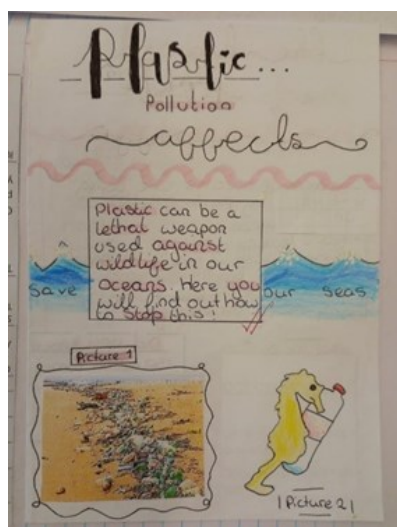 Plastic...
Pollution
affects
Plastic can be a
lethal weapon
used against
wildlife in our
oceans. Here you
will find out how
to stop this!
save our seas
Picture 1
Picture 2